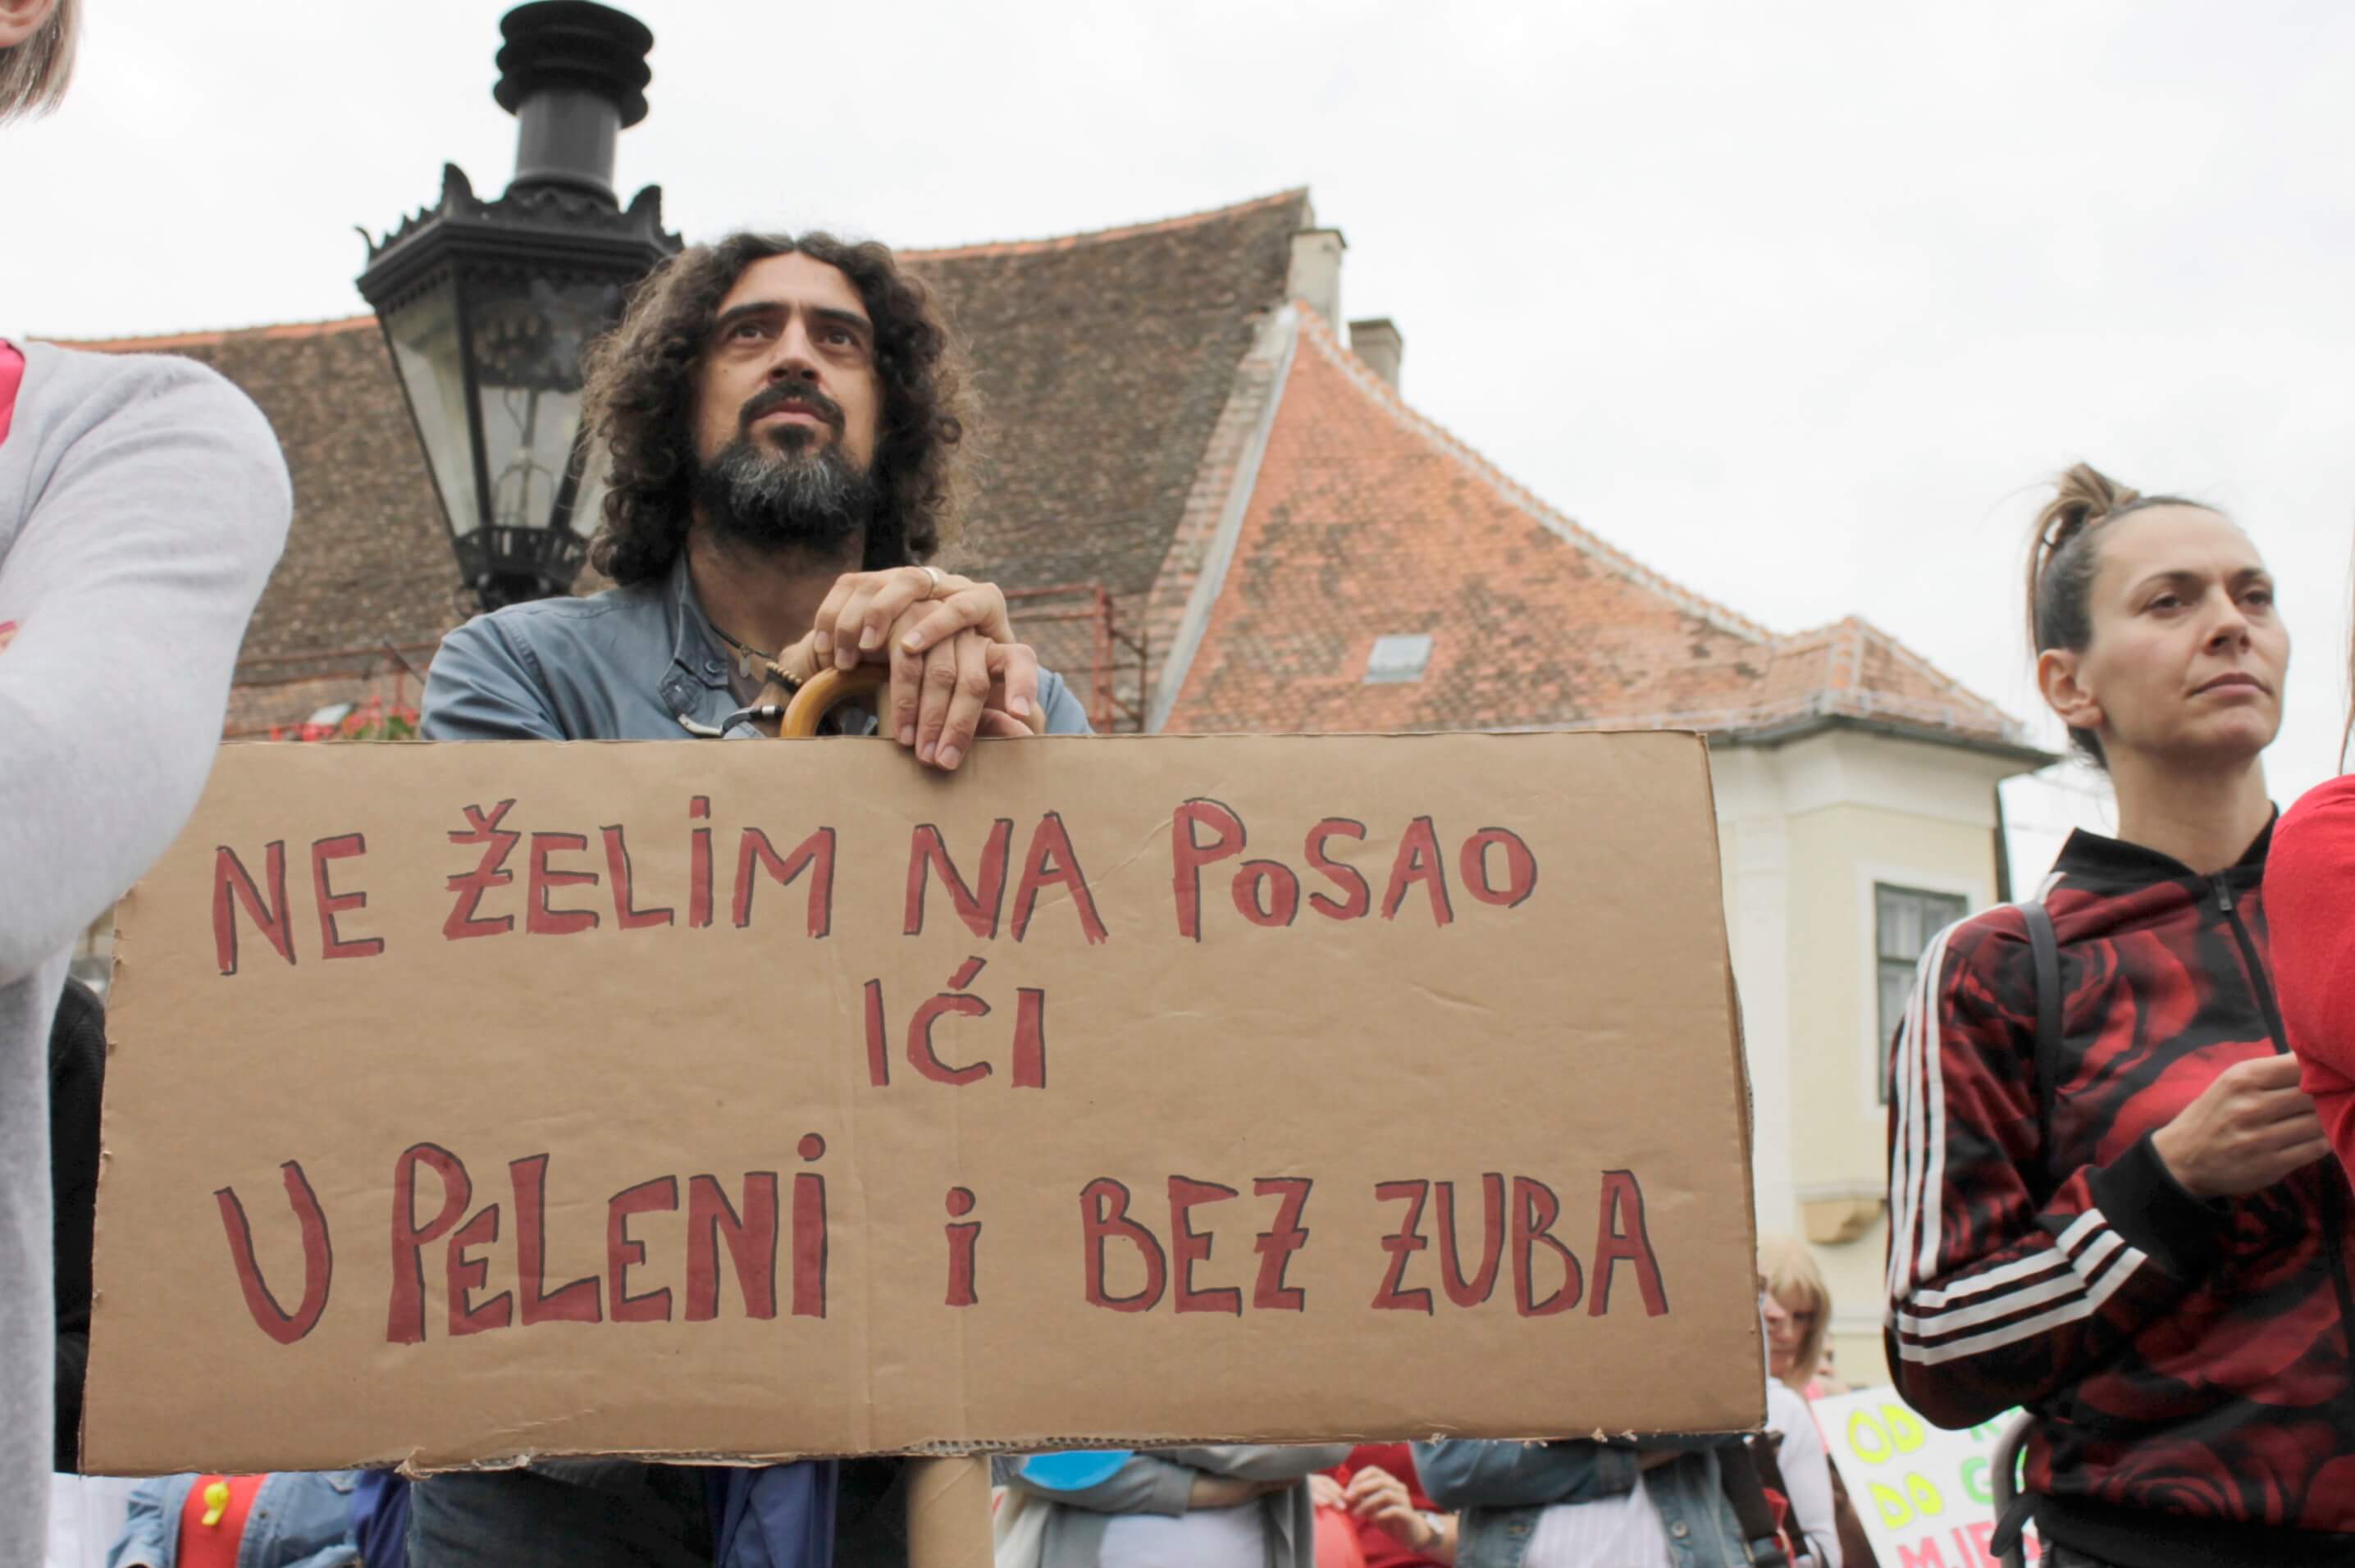 NE ŽELiM NA PoSAO
IĆI
U PeLENi i BEZ ZUBA
OD
DO